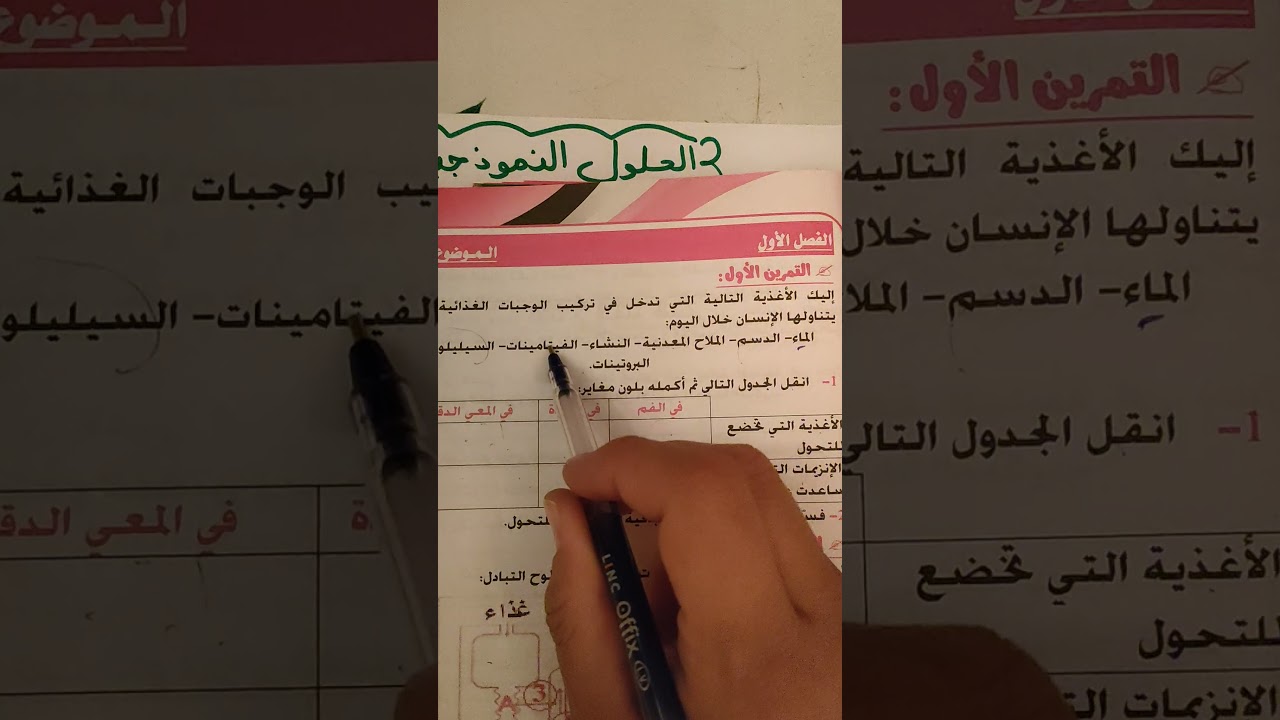 الحلول النموذجي
الفصل الأول
الموضوع
التمرين الأول:
إليك الأغذية التالية التي تدخل في تركيب الوجبات الغذائية
يتناولها الإنسان خلال اليوم:
الماء- الدسم- الملاح المعدنية- النشاء- الفيتامينات- السيليلو
البروتينات.
1- انقل الجدول التالي ثم أكمله بلون مغاير:
في الفم
في المعي الدق
الأغذية التي تخضع
للتحول
الإنزيمات
ساعدت
للتحول.
لوح التبادل:
غذاء
A 3
LINC Offix